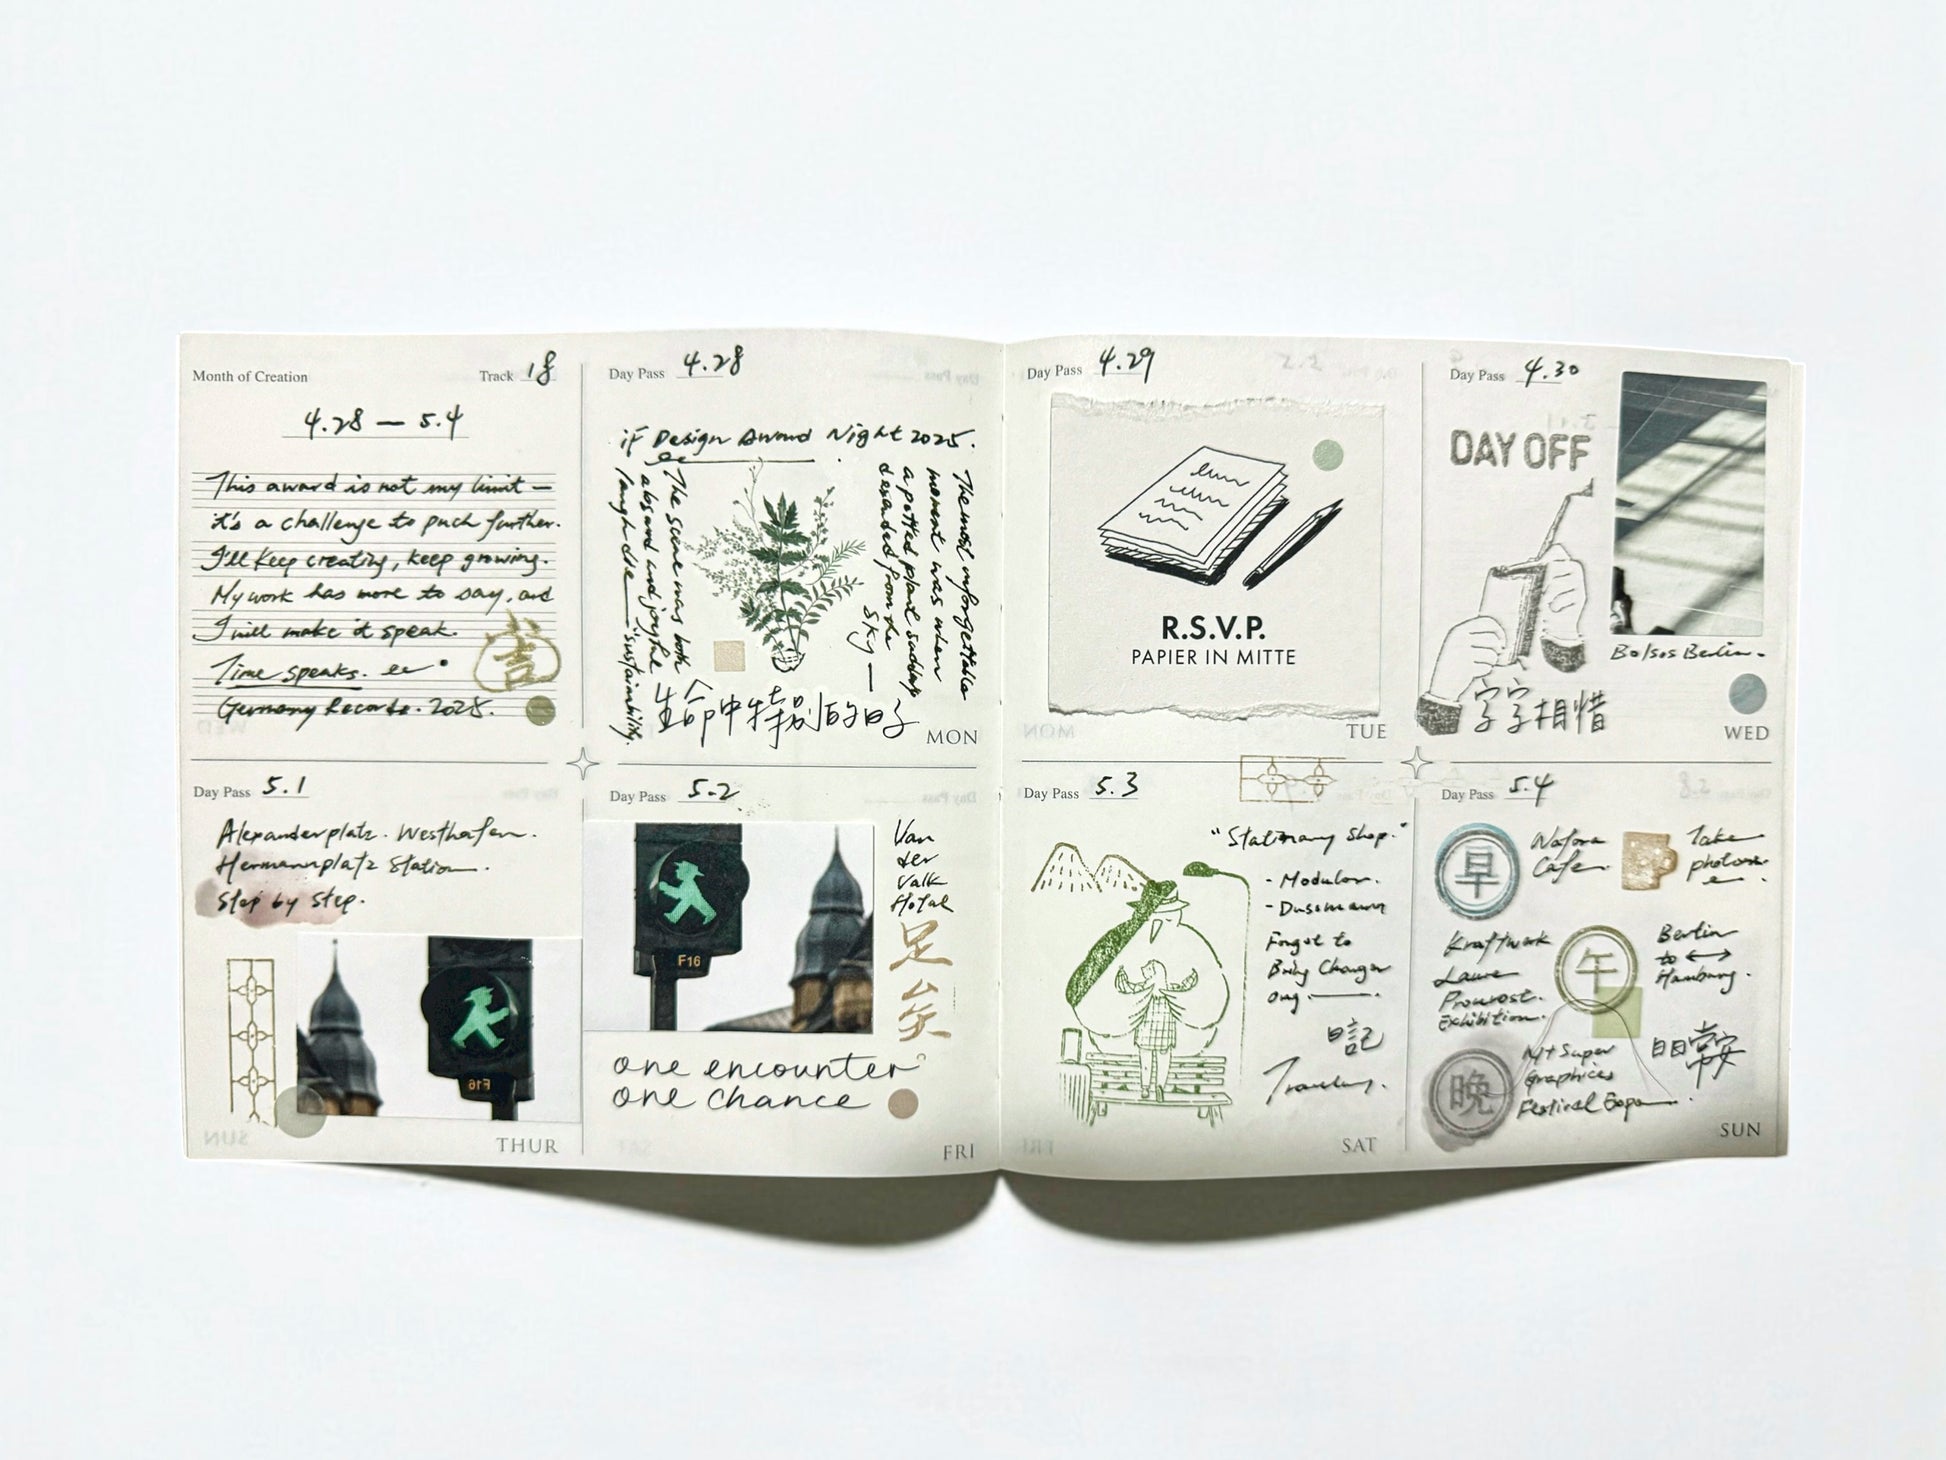 Month of Creation
Track 18
4.28 — 5.4
This award is not my limit —
it's a challenge to puch further.
I'll keep creating, keep growing.
My work has more to say, and
I will make it speak.
Time speaks.
Germany Records. 2025.
Day Pass 4.28
iF Design Award Night 2025.
The most unforgettable
moment was when
a potted plant suddenly
descended from the
sky —
The scene was both
absurd and joyful
laugh else — sustainability.
生命中特別的日子
MON
Day Pass 4.29
R.S.V.P.
PAPIER IN MITTE
TUE
Day Pass 4.30
DAY OFF
Bolsos Berlin.
字字相惜
WED
Day Pass 5.1
Alexanderplatz. Westhafen.
Hermannplatz Station.
Step by Step.
F16
THUR
Day Pass 5.2
F16
Van
der
Valk
Hotel
one encounter
one chance
FRI
Day Pass 5.3
"Stationary Shop."
- Modulor.
- Dussmann
Forgot to
Bring Changer
omg.
日記
Traveling.
SAT
Day Pass 5.4
早
Cafe.
Take
photos
午
Kraftwerk
Laure
Prouvost.
Exhibition.
Berlin
to ↔
Hamburg.
晚
Super
Graphics
Festival Expo
日日常安
SUN